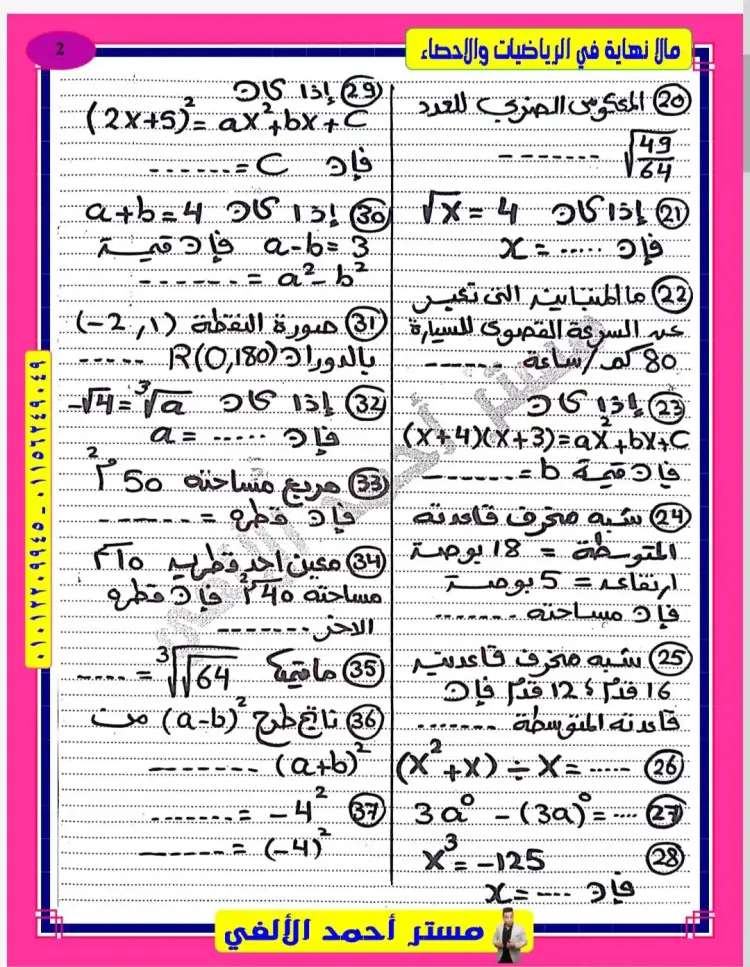 2
مالا نهاية في الرياضيات والاحصاء
20 المعكوس الضربي للعدد
√(49/64) -------
21 إذا كان √x = 4
فإن ..... = x
22 ما المتباينة التى تعبر
عن السرعة القصوى للسيارة
80 كم/ساعة -------
23 إذا كان
(x+4)(x+3)=ax²+bx+c
فإن قيمة b = -------
24 شبه منحرف قاعدته
المتوسطة = 18 بوصة
ارتفاعه = 5 بوصة
فإن مساحته -------
25 شبه منحرف قاعدتيه
16 قدم ؛ 12 قدم فإن
قاعدته المتوسطة -------
26 (x²+x) ÷ x = -----
27 3a⁰ - (3a)⁰ = ----
28 x³ = -125
فإن ---- = x
29 إذا كان
(2x+5)² = ax²+bx+c
فإن c = -------
30 إذا كان a+b=4
a-b=3 فإن قيمة
a²-b² = -------
31 صورة النقطة (-2,1)
بالدوران R(0,180) -----
32 إذا كان -√4 = ³√a
فإن ..... = a
33 مربع مساحته 50 م²
فإن قطره = -------
34 معين احد قطريه 10م
مساحته 40م² فإن قطره
الاخر -------
35 ما قيمة ³√√64 = ----
36 ناتج طرح (a-b)² من
(a+b)² -------
37 -4² = -------
(-4)² = -------
٠١٠١٢٢٠٩٩٤٥ - ٠١١٥٦٢٤٩٠٤٩
مستر أحمد الألفي
مستر أحمد الألفي